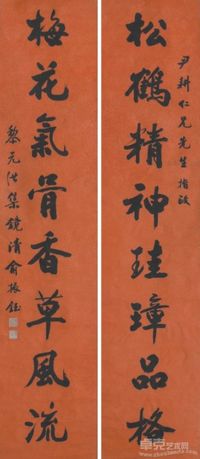 尹耕仁兄先生指政
松鶴精神珪璋品格
梅花氣骨香草風流
黎元洪集鏡清俞振鈺
卓克艺术网